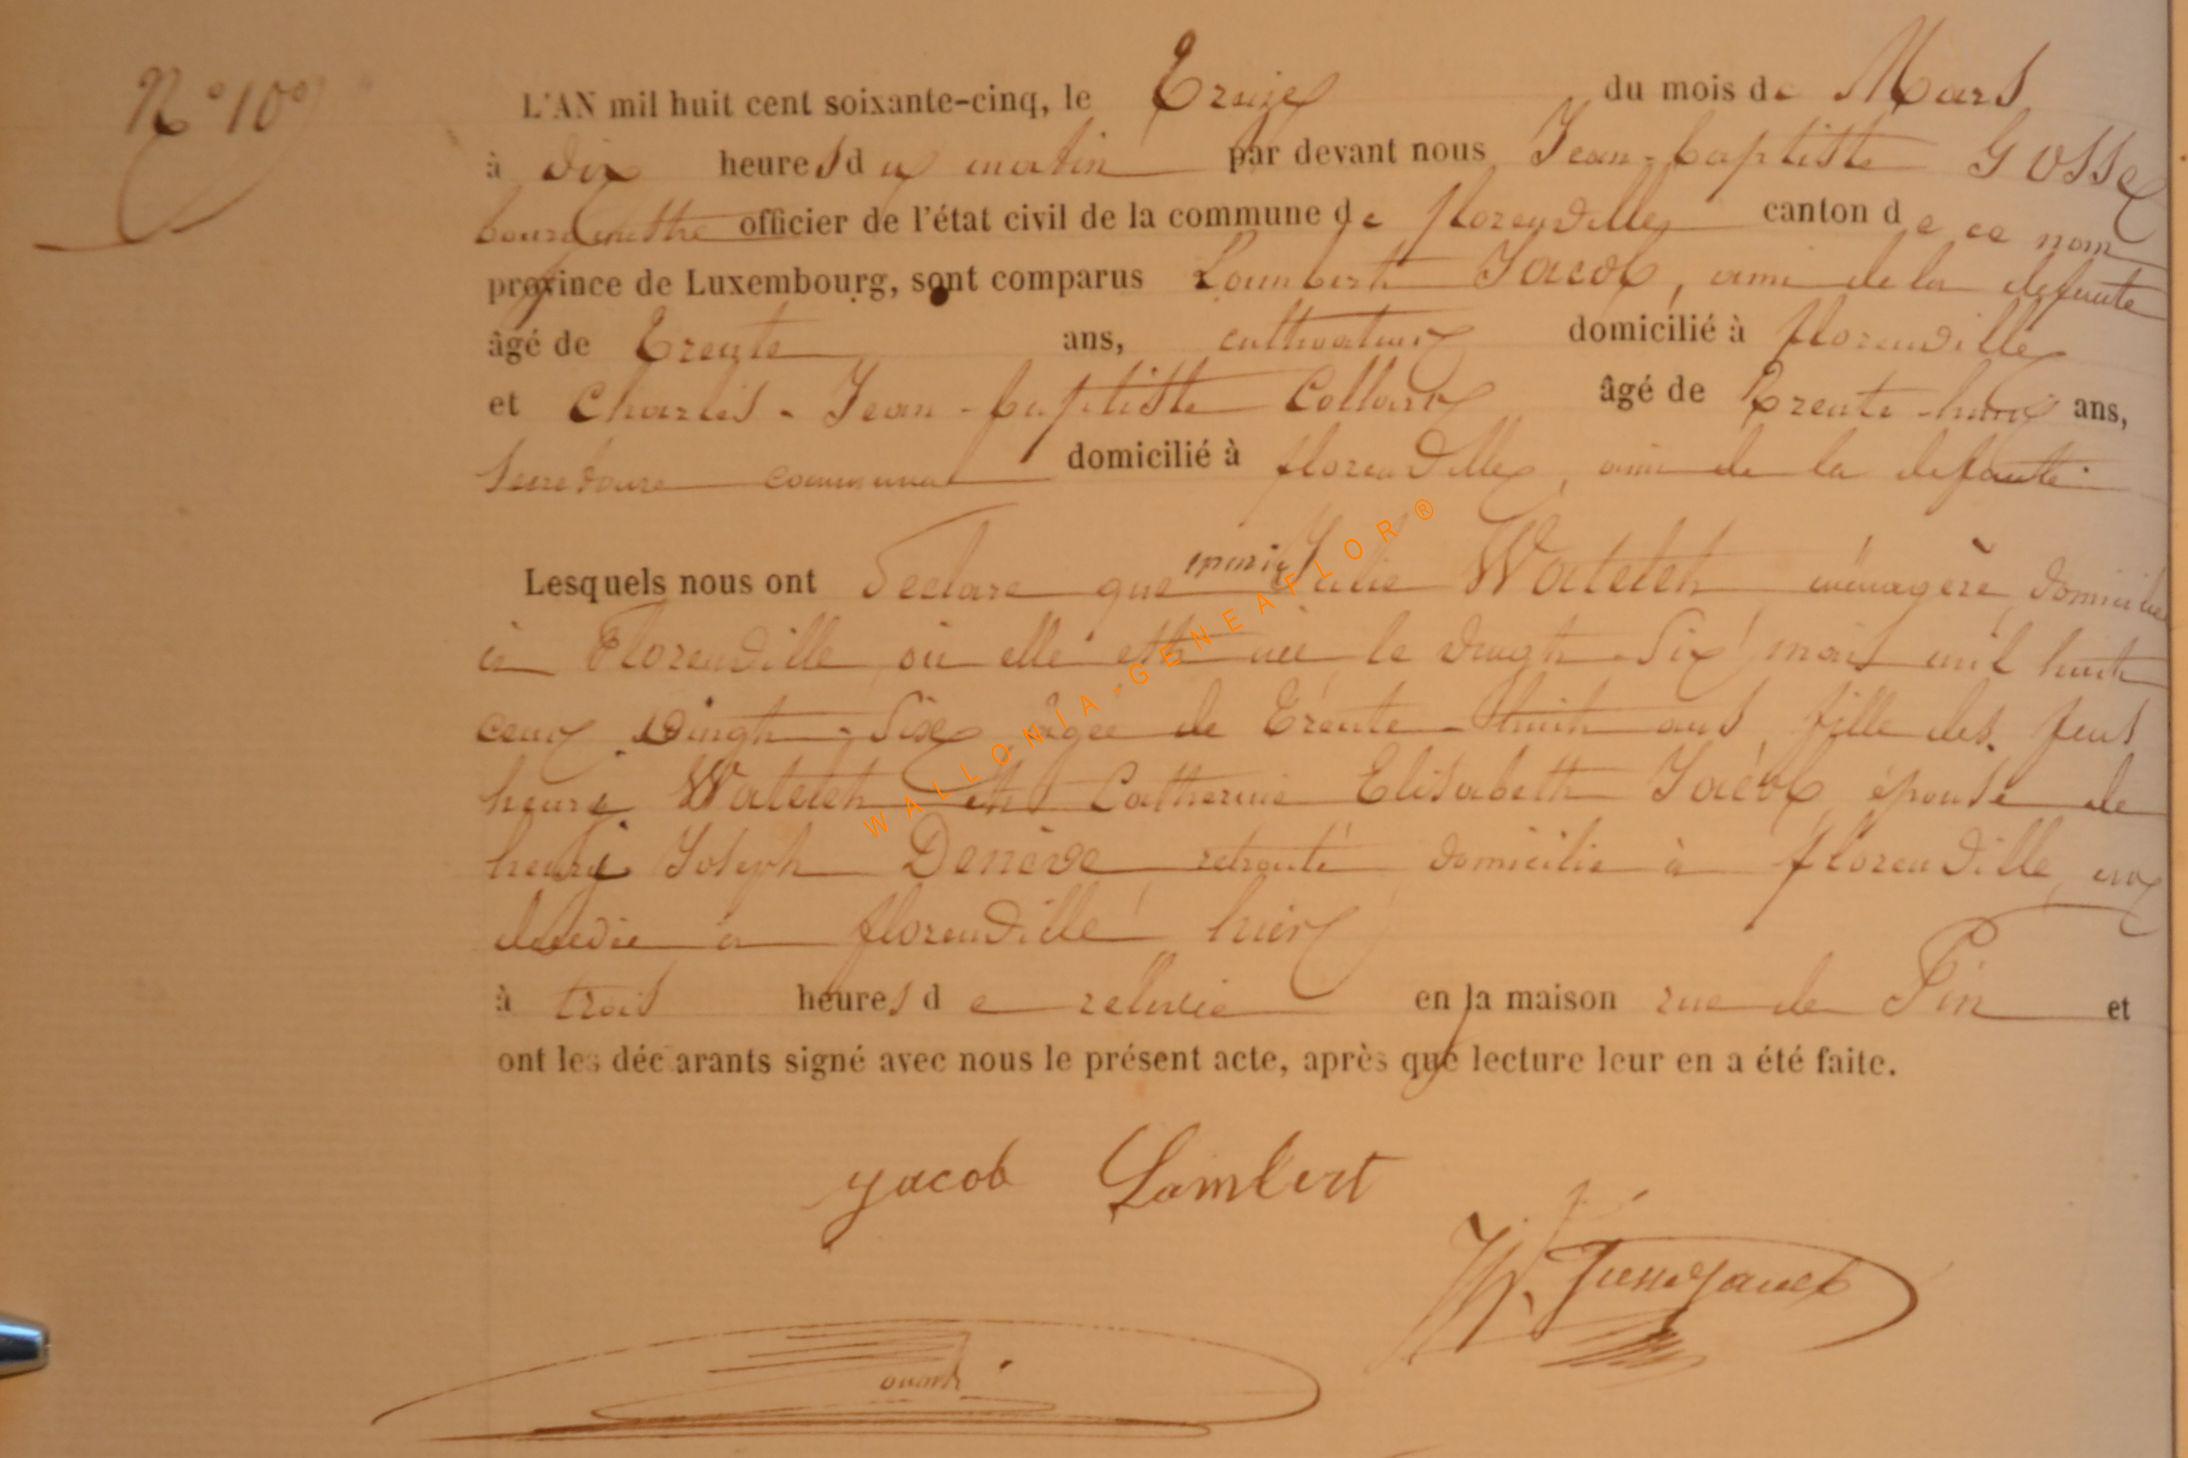 N° 10
L'AN mil huit cent soixante-cinq, le Treize du mois de Mars
à dix heures du matin par devant nous Jean-baptiste Gosse
bourgmestre officier de l'état civil de la commune de florenville canton de ce nom
province de Luxembourg, sont comparus Lambert Jacob, ami de la defunte
âgé de Trente ans, cultivateur domicilié à florenville
et Charles-Jean-baptiste Collard âgé de Trente-huit ans,
secretaire communal domicilié à florenville, ami de la defunte
Lesquels nous ont declare que marie Julie Watelet ménagère, domiciliée
à Florenville où elle est née le vingt-six mars mil huit
cent vingt-six âgée de Trente-huit ans, fille des feus
henry Watelet et Catherine Elisabeth Jacob, épouse de
henry Joseph Denève retraité domicilié à florenville, est
decedée à florenville hier
à trois heures de relevée en la maison rue de Pin et
ont les déclarants signé avec nous le présent acte, après que lecture leur en a été faite.
yacob Lambert
WALLONIA-GENEAFLOR®